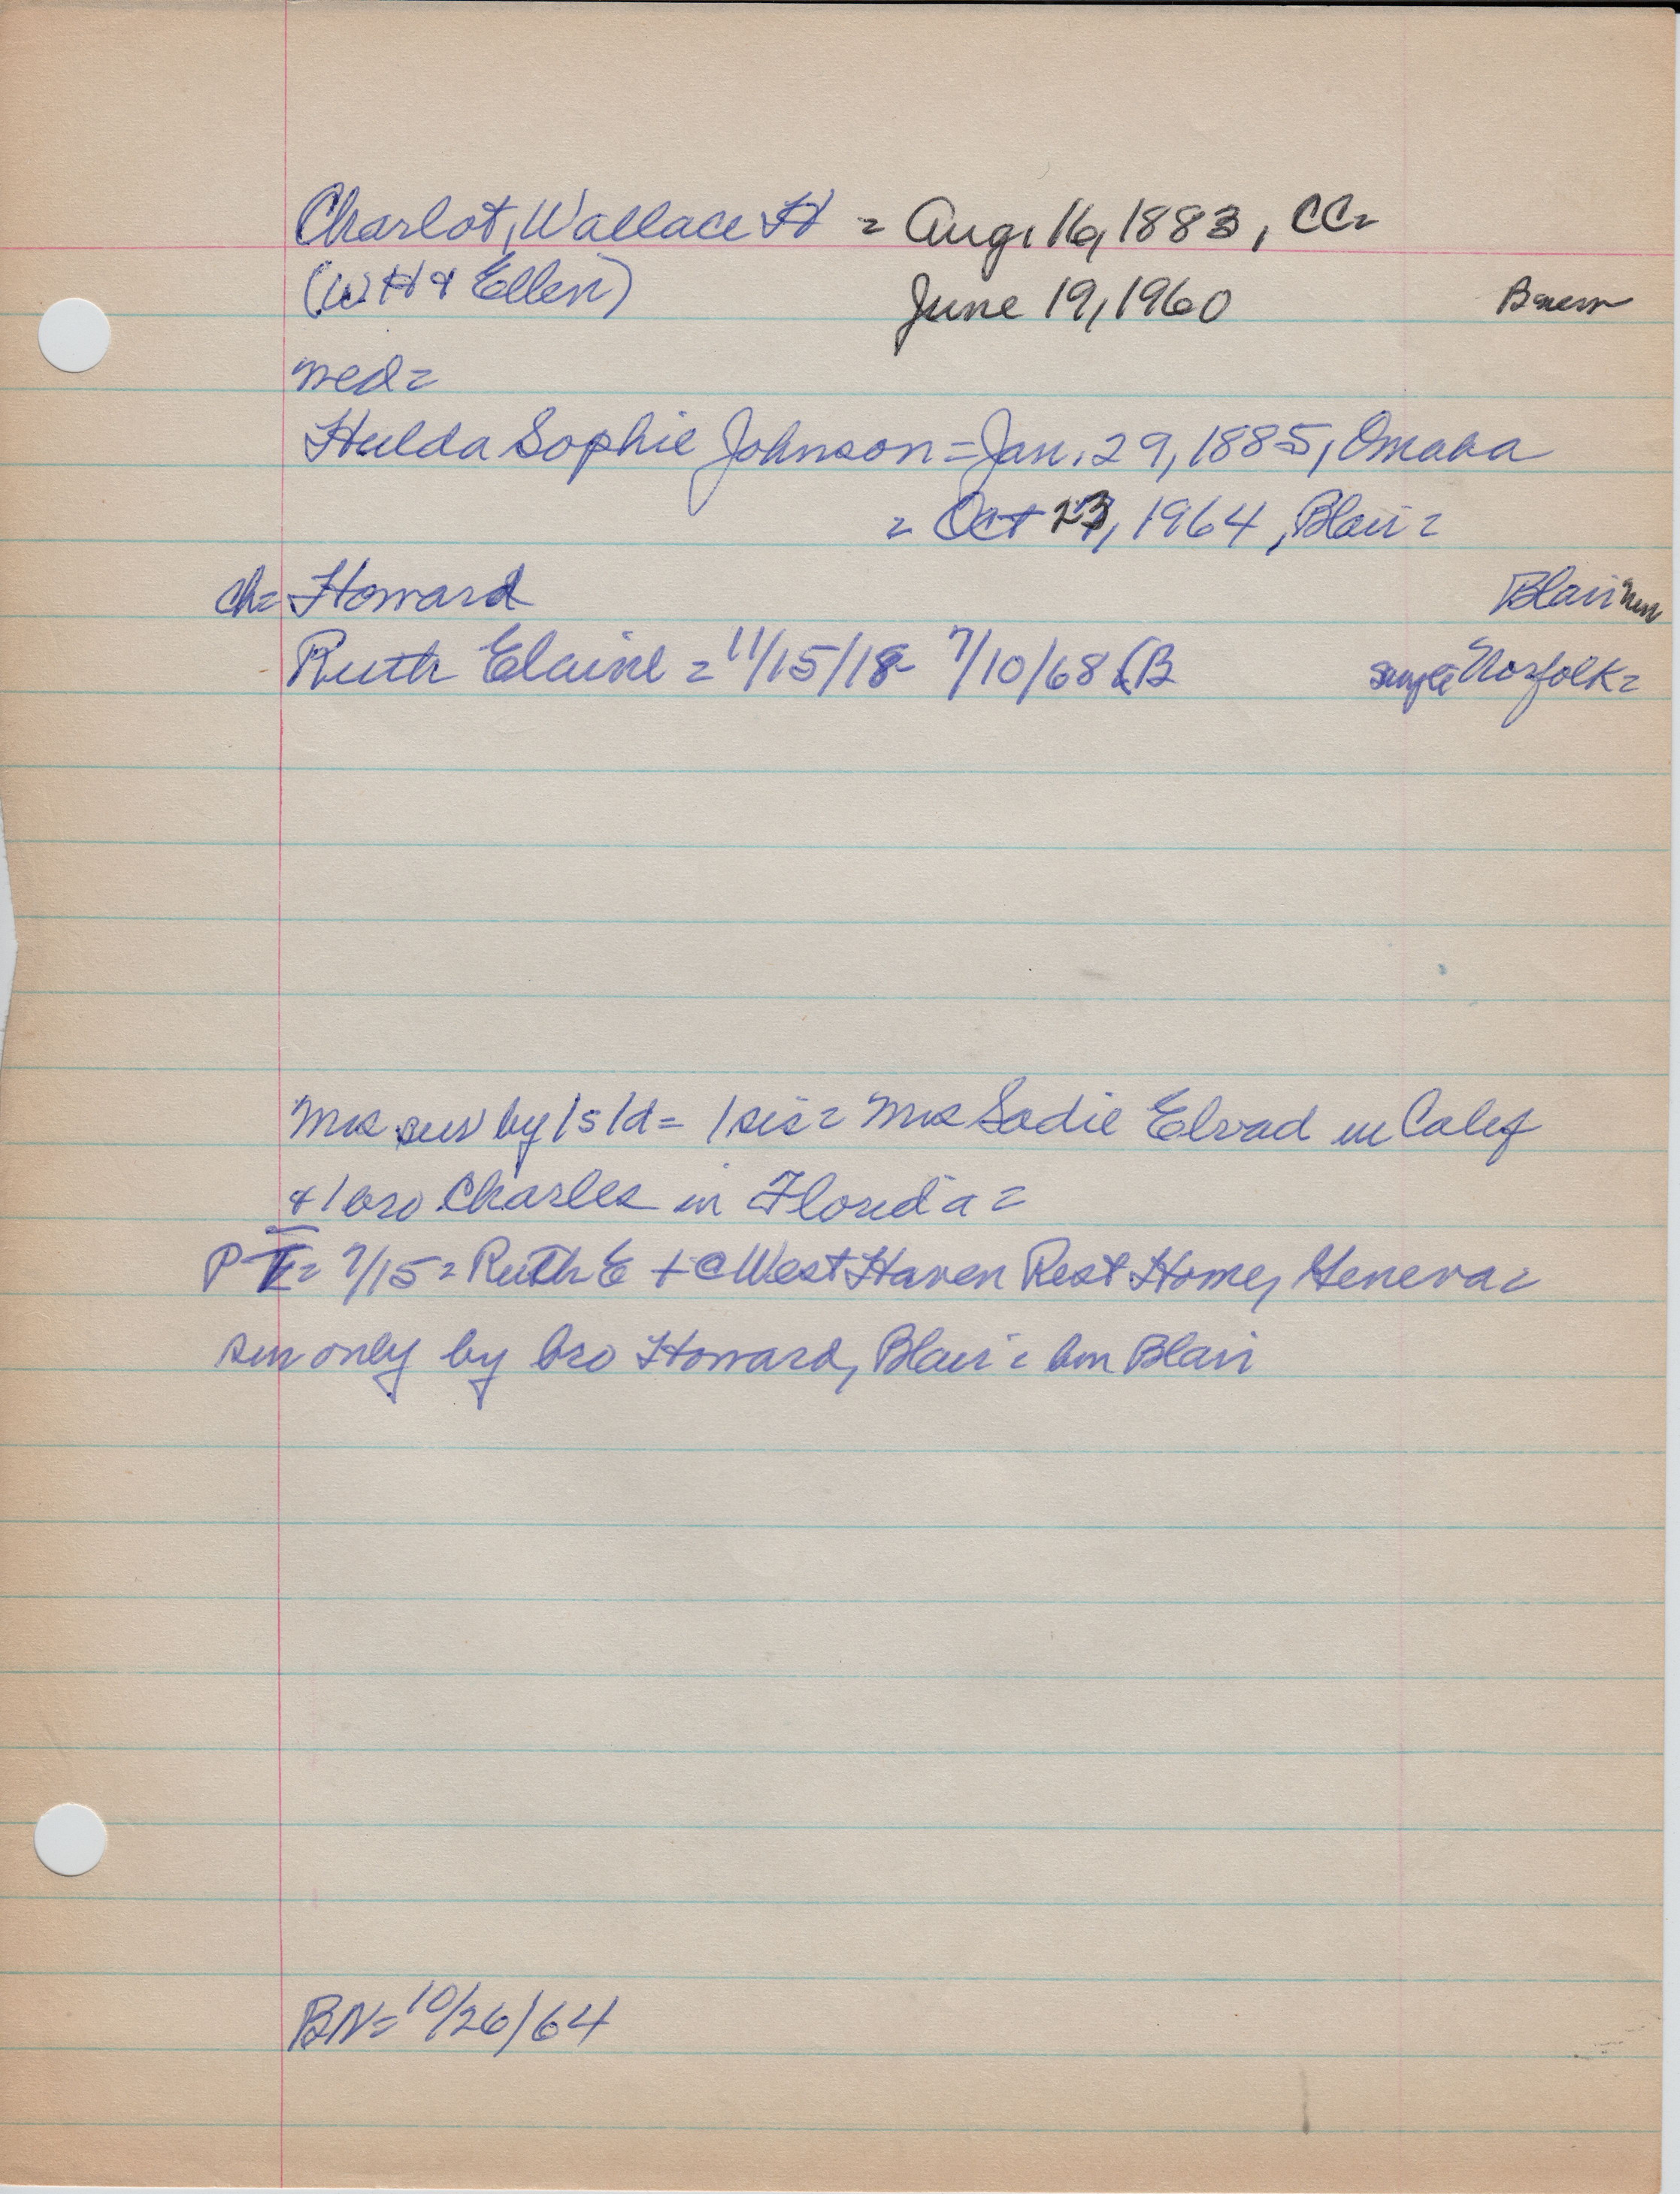 Charlot, Wallace H = Aug. 16, 1883, CC=
(WH & Ellen) June 19, 1960
med=
Hulda Sophie Johnson = Jan. 29, 1885, Omaha
= Oct 23, 1964, Blair=
ch= Howard Blair
Ruth Elaine = 11/15/18- 7/10/68 (B single Norfolk=
Mrs sur by 1s 1d= 1 sis= Mrs Sadie Elvad in Calif
& 1 bro Charles in Florida=
PT= 7/15= Ruth E + @ West Haven Rest Home, Geneva=
sur only by bro Howard, Blair= bm Blair
BN= 10/26/64